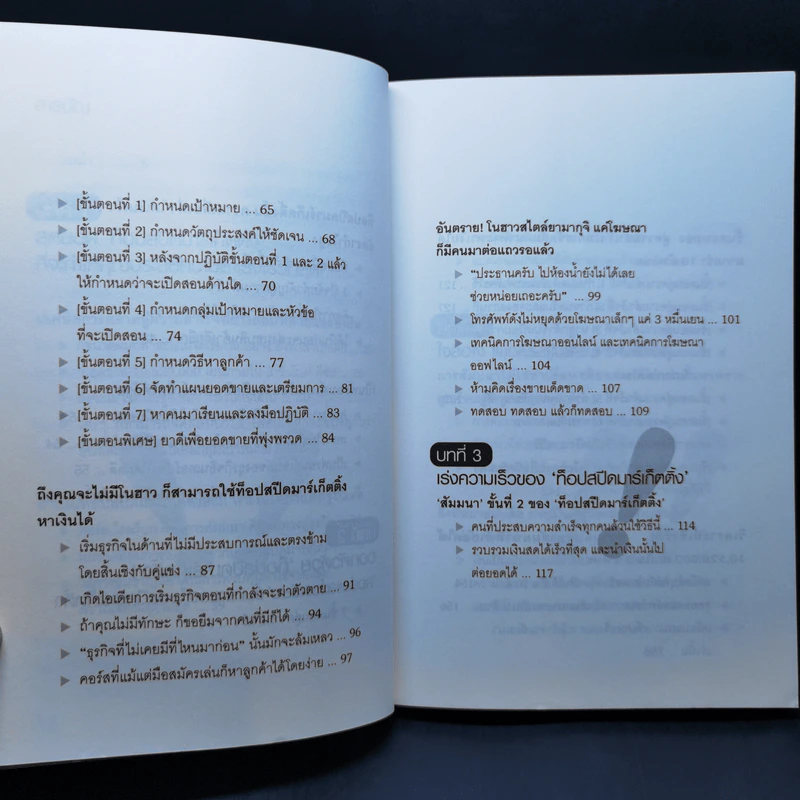 [ขั้นตอนที่ 1] กำหนดเป้าหมาย ... 65
[ขั้นตอนที่ 2] กำหนดวัตถุประสงค์ให้ชัดเจน ... 68
[ขั้นตอนที่ 3] หลังจากปฏิบัติขั้นตอนที่ 1 และ 2 แล้ว
ให้กำหนดว่าจะเปิดสอนด้านใด ... 70
[ขั้นตอนที่ 4] กำหนดกลุ่มเป้าหมายและหัวข้อ
ที่จะเปิดสอน ... 74
[ขั้นตอนที่ 5] กำหนดวิธีหาลูกค้า ... 77
[ขั้นตอนที่ 6] จัดทำแผนยอดขายและเตรียมการ ... 81
[ขั้นตอนที่ 7] หาคนมาเรียนและลงมือปฏิบัติ ... 83
[ขั้นตอนพิเศษ] ยาดีเพื่อยอดขายที่พุ่งพรวด ... 84
ถึงคุณจะไม่มีโนฮาว ก็สามารถใช้ท็อปสปีดมาร์เก็ตติ้ง
หาเงินได้
เริ่มธุรกิจในด้านที่ไม่มีประสบการณ์และตรงข้าม
โดยสิ้นเชิงกับคู่แข่ง ... 87
เกิดไอเดียการเริ่มธุรกิจตอนที่กำลังจะฆ่าตัวตาย ... 91
ถ้าคุณไม่มีทักษะ ก็ขอยืมจากคนที่มีก็ได้ ... 94
“ธุรกิจที่ไม่เคยมีที่ไหนมาก่อน” นั้นมักจะล้มเหลว ... 96
คอร์สที่แม้แต่มือสมัครเล่นก็หาลูกค้าได้โดยง่าย ... 97
อันตราย! โนฮาวสไตล์ยามากุจิ แค่โฆษณา
ก็มีคนมาต่อแถวรอแล้ว
“ประธานครับ ไปห้องน้ำยังไม่ได้เลย
ช่วยหน่อยเถอะครับ” ... 99
โทรศัพท์ดังไม่หยุดด้วยโฆษณาเล็กๆ แค่ 3 หมื่นเยน ... 101
เทคนิคการโฆษณาออนไลน์ และเทคนิคการโฆษณา
ออฟไลน์ ... 104
ห้ามคิดเรื่องขายเด็ดขาด ... 107
ทดสอบ ทดสอบ แล้วก็ทดสอบ ... 109
บทที่ 3
เร่งความเร็วของ ‘ท็อปสปีดมาร์เก็ตติ้ง’
‘สัมมนา’ ขั้นที่ 2 ของ ‘ท็อปสปีดมาร์เก็ตติ้ง’
คนที่ประสบความสำเร็จทุกคนล้วนใช้วิธีนี้ ... 114
รวบรวมเงินสดได้เร็วที่สุด และนำเงินนั้นไป
ต่อยอดได้ ... 117